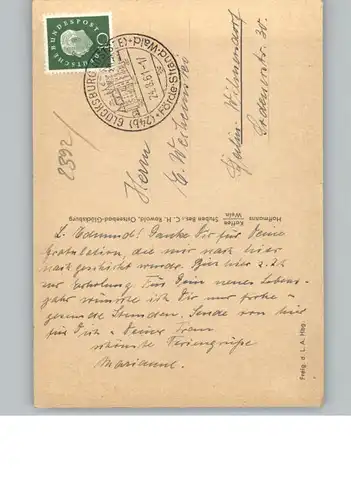 DEUTSCHE BUNDESPOST
(24b) GLÜCKSBURG
Förde·Strand·Wald
24.8.61-17
8392/
Herrn
E.
Berlin-Wilmersdorf
30.
Hoffmanns Kaffee Wein Stuben Bes.: C. H. Rewoldt, Ostseebad-Glücksburg
L. Edmund! Danke Dir für Deine
Gratulation, die mir nach hier
nach geschickt wurde. Bin hier z. Zt.
zur Erholung. Für Dein neues Lebens-
jahr wünsche ich Dir nur frohe u.
gesunde Stunden. Sende von hier
für Dich u. Deiner Frau
schönste Feriengrüße
Marianne.
Freig. d. L. A. Hbg.